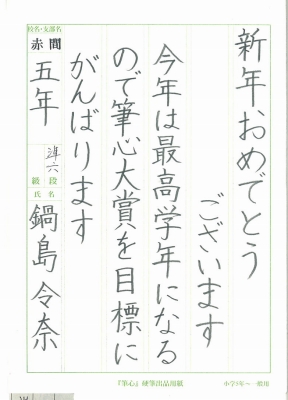 新年おめでとう
ございます
今年は最高学年になる
ので筆心大賞を目標に
がんばります
校名・支部名
赤間
五年
準六
級 段
氏名
鍋島令奈
『筆心』硬筆出品用紙
小学5年〜一般用